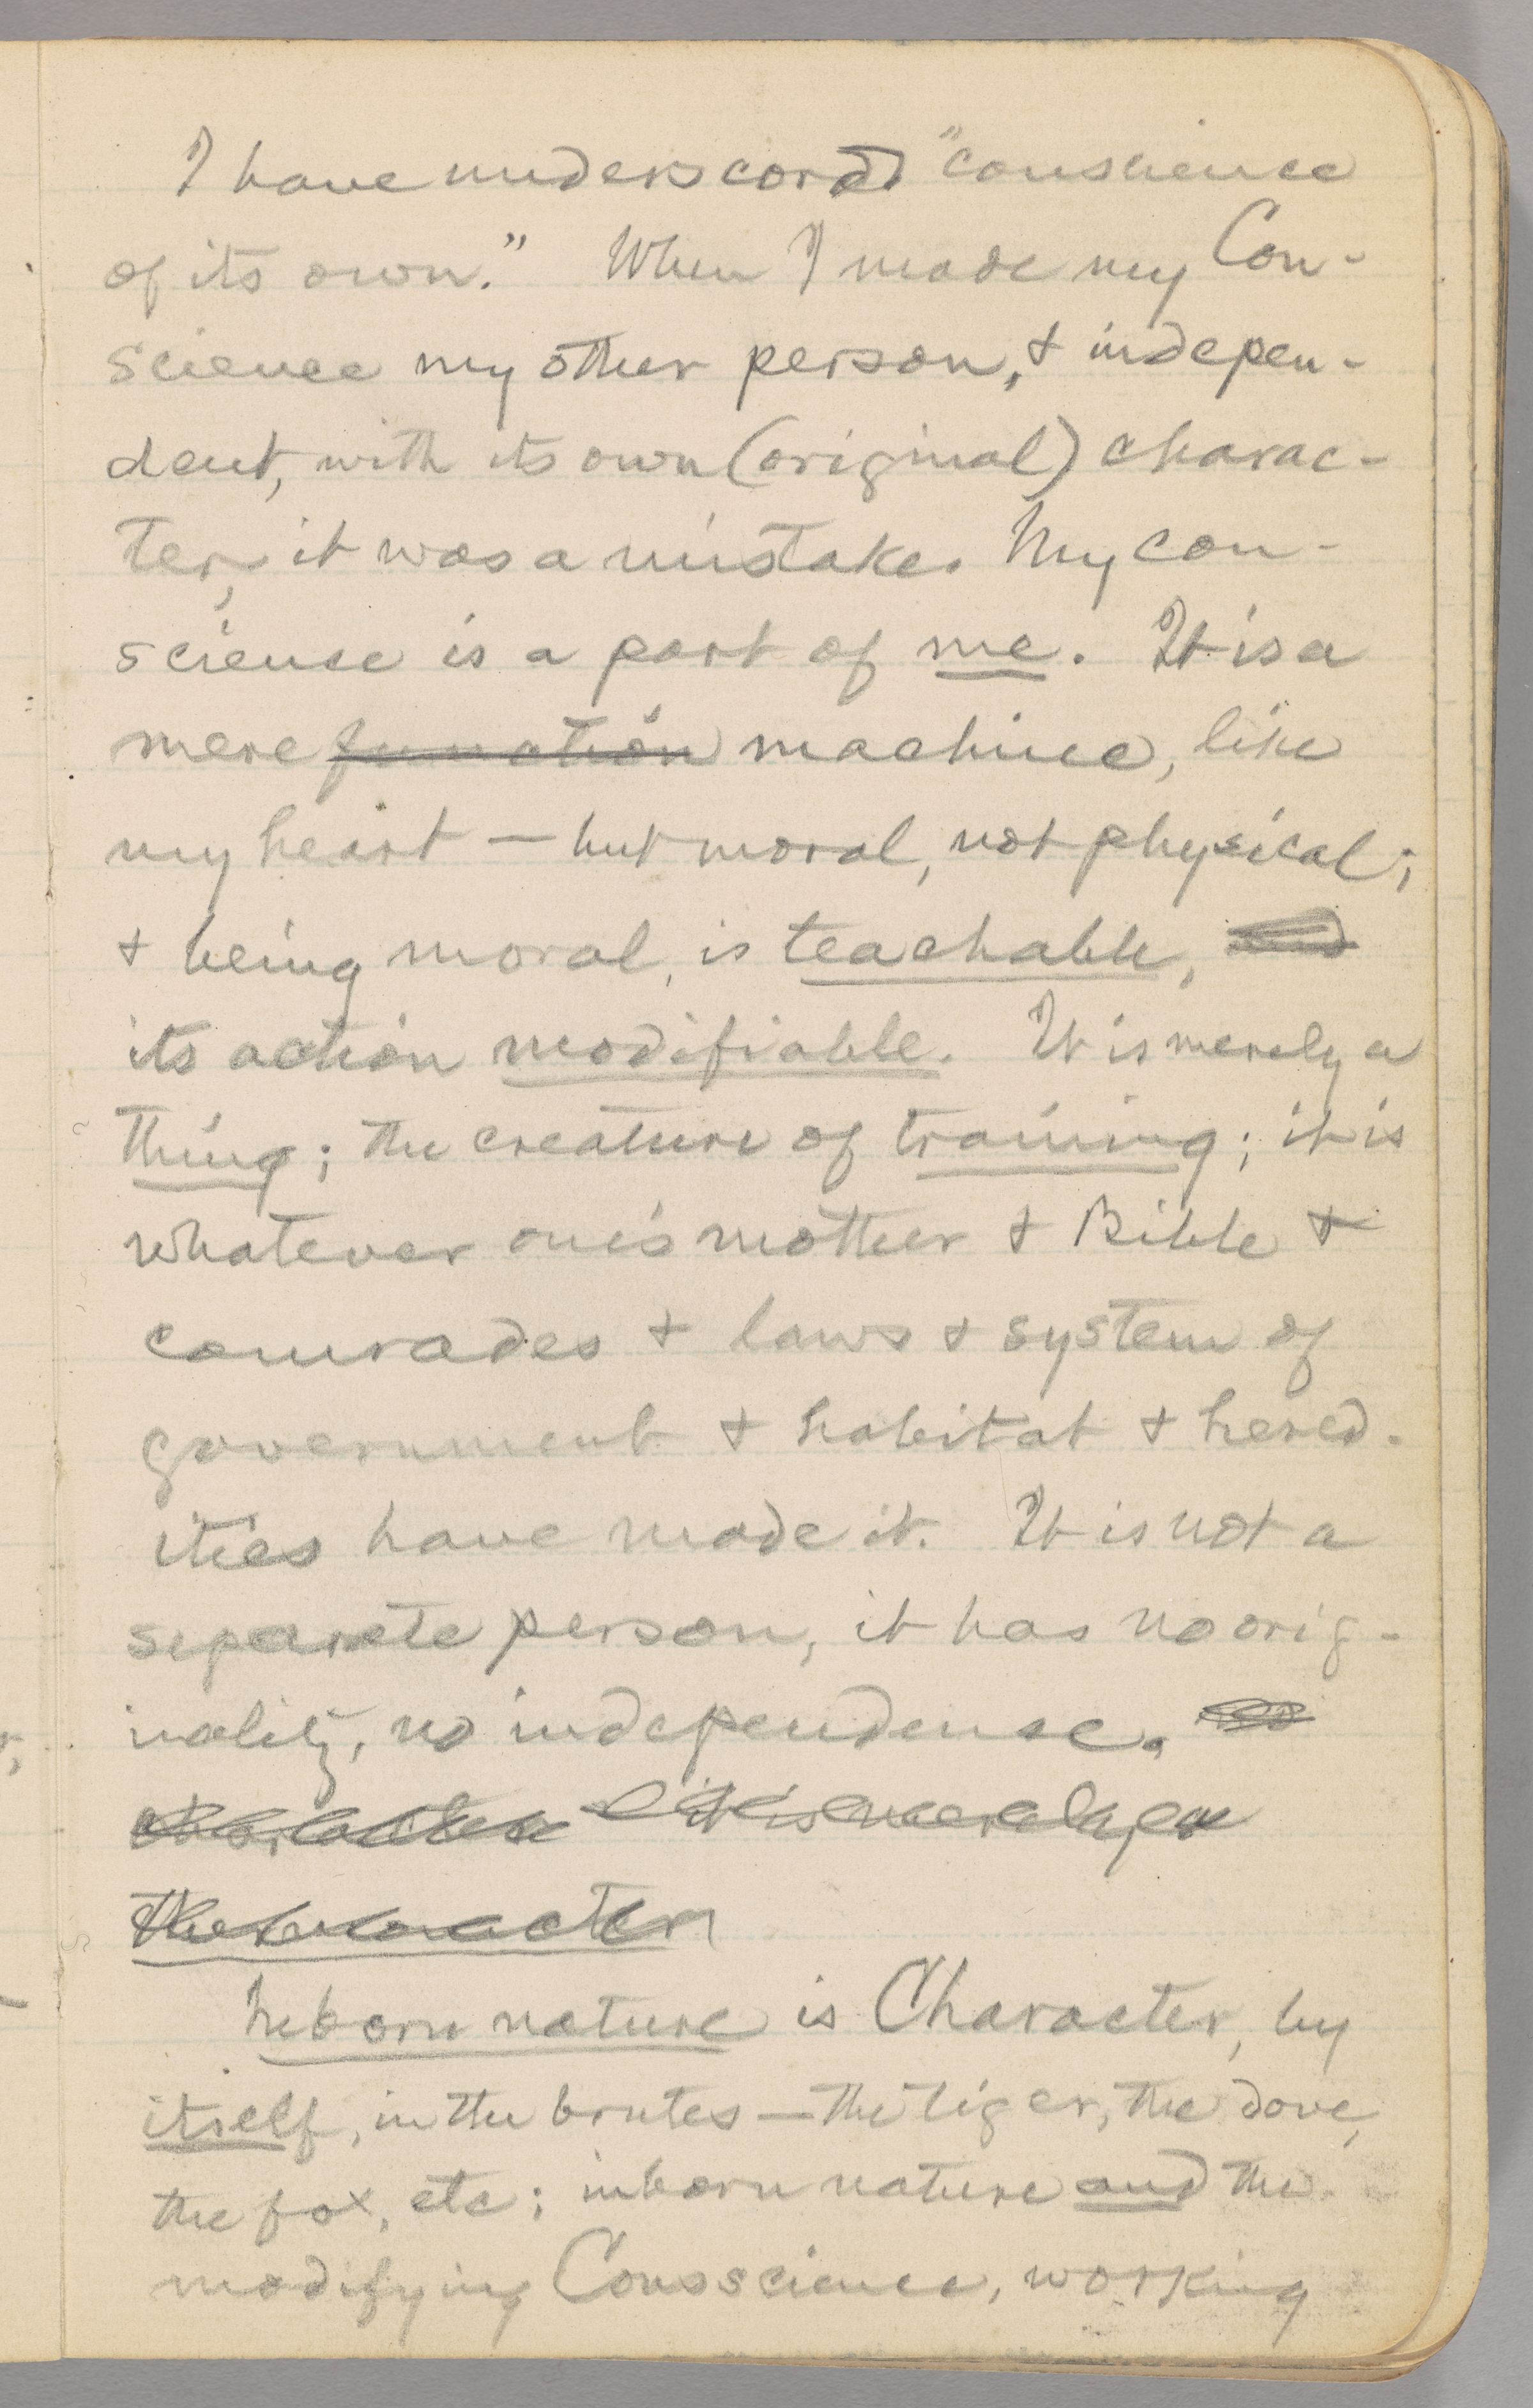 I have underscored "conscience
of its own." When I made my Con-
science my other person, & indepen-
dent, with its own (original) charac-
ter, it was a mistake. My con-
science is a part of me. It is a
mere function machine, like
my heart — but moral, not physical;
& being moral, is teachable, and
its action modifiable. It is merely a
thing; the creature of training; it is
whatever one's mother & Bible &
comrades & laws & system of
government & habitat & hered-
ities have made it. It is not a
separate person, it has no orig-
inality, no independence.
character It is merely
the character
Inborn nature is Character, by
itself, in the brutes — the tiger, the dove,
the fox, etc; inborn nature and the
modifying Consscience, working